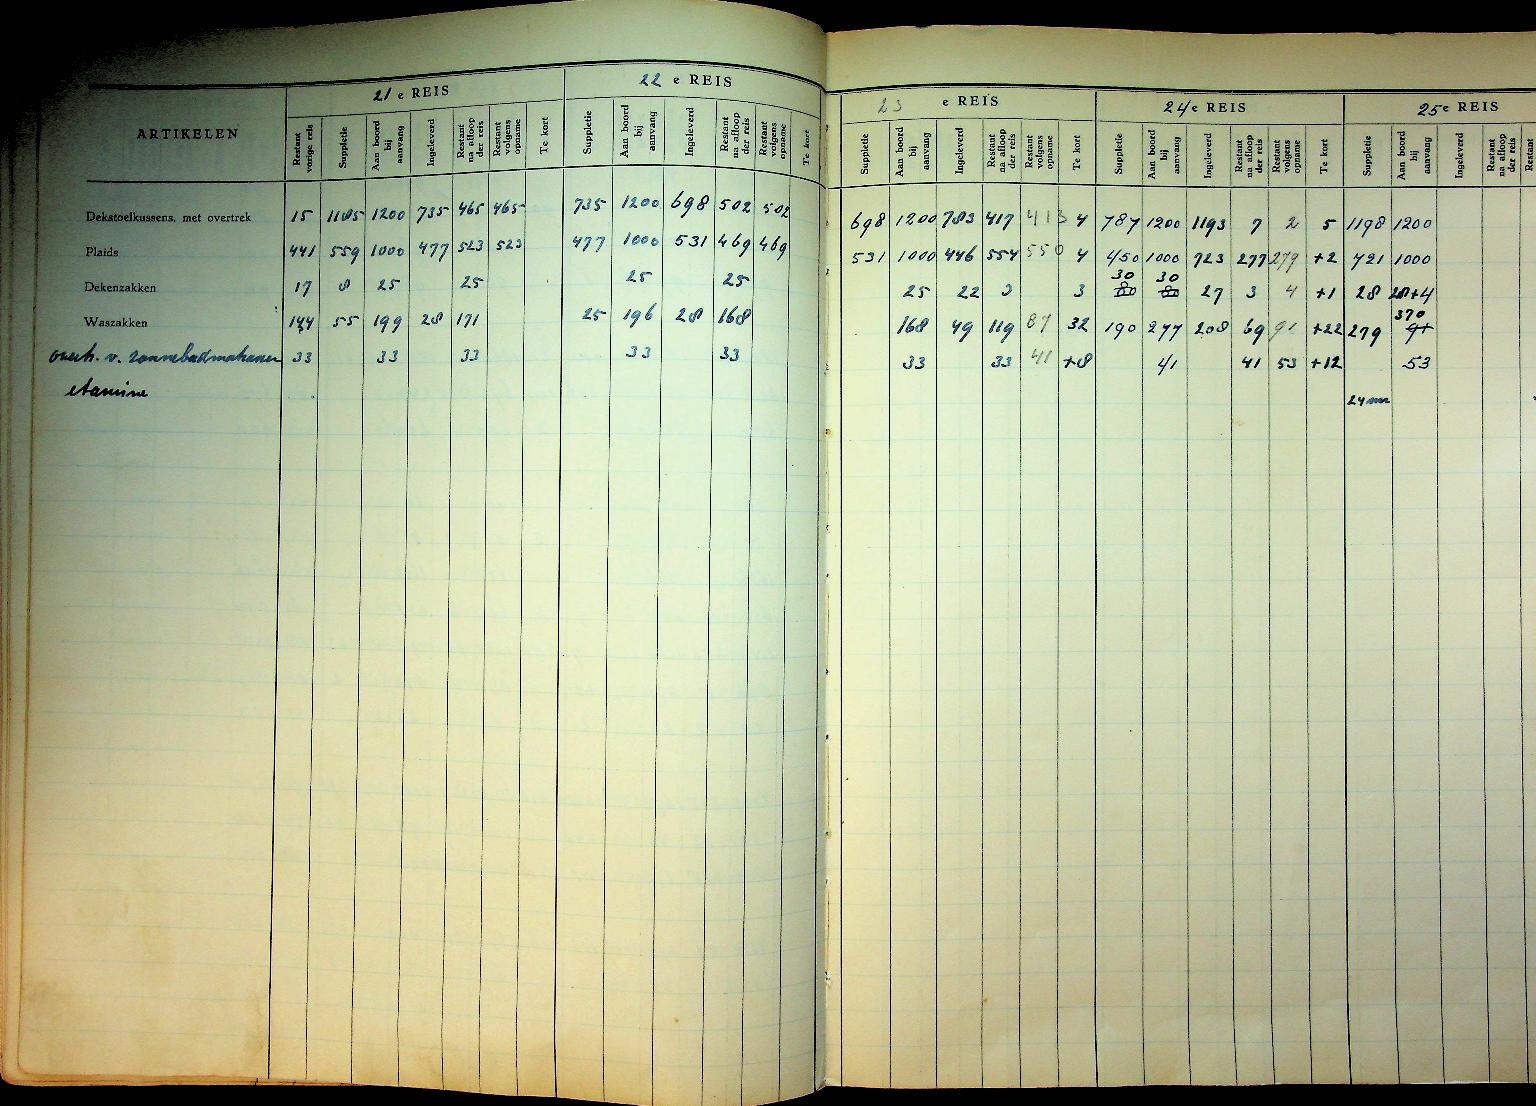 21 e REIS 22 e REIS 23 e REIS 24 e REIS 25 e REIS
ARTIKELEN Restant vorige reis Suppletie Aan boord bij aanvang Ingeleverd Restant na afloop der reis Restant volgens opname Te kort Suppletie Aan boord bij aanvang Ingeleverd Restant na afloop der reis Restant volgens opname Te kort Suppletie Aan boord bij aanvang Ingeleverd Restant na afloop der reis Restant volgens opname Te kort Suppletie Aan boord bij aanvang Ingeleverd Restant na afloop der reis Restant volgens opname Te kort Suppletie Aan boord bij aanvang Ingeleverd Restant na afloop der reis Restant
Dekstoelkussens, met overtrek 15 1185 1200 735 465 465 735 1200 698 502 502 698 1200 783 417 413 4 787 1200 1193 7 2 5 1198 1200
Plaids 441 559 1000 477 523 523 477 1000 531 469 469 531 1000 446 554 550 4 450 1000 723 277 279 +2 721 1000
30 30
Dekenzakken 17 8 25 25 25 25 25 22 3 3 27 3 4 +1 28 28+4
370
Waszakken 144 55 199 28 171 25 196 28 168 168 49 119 87 32 190 277 208 69 91 +22 279 91
overh. v. zonnebadmatrassen 33 33 33 33 33 33 33 41 +8 41 41 53 +12 53
etamine 24